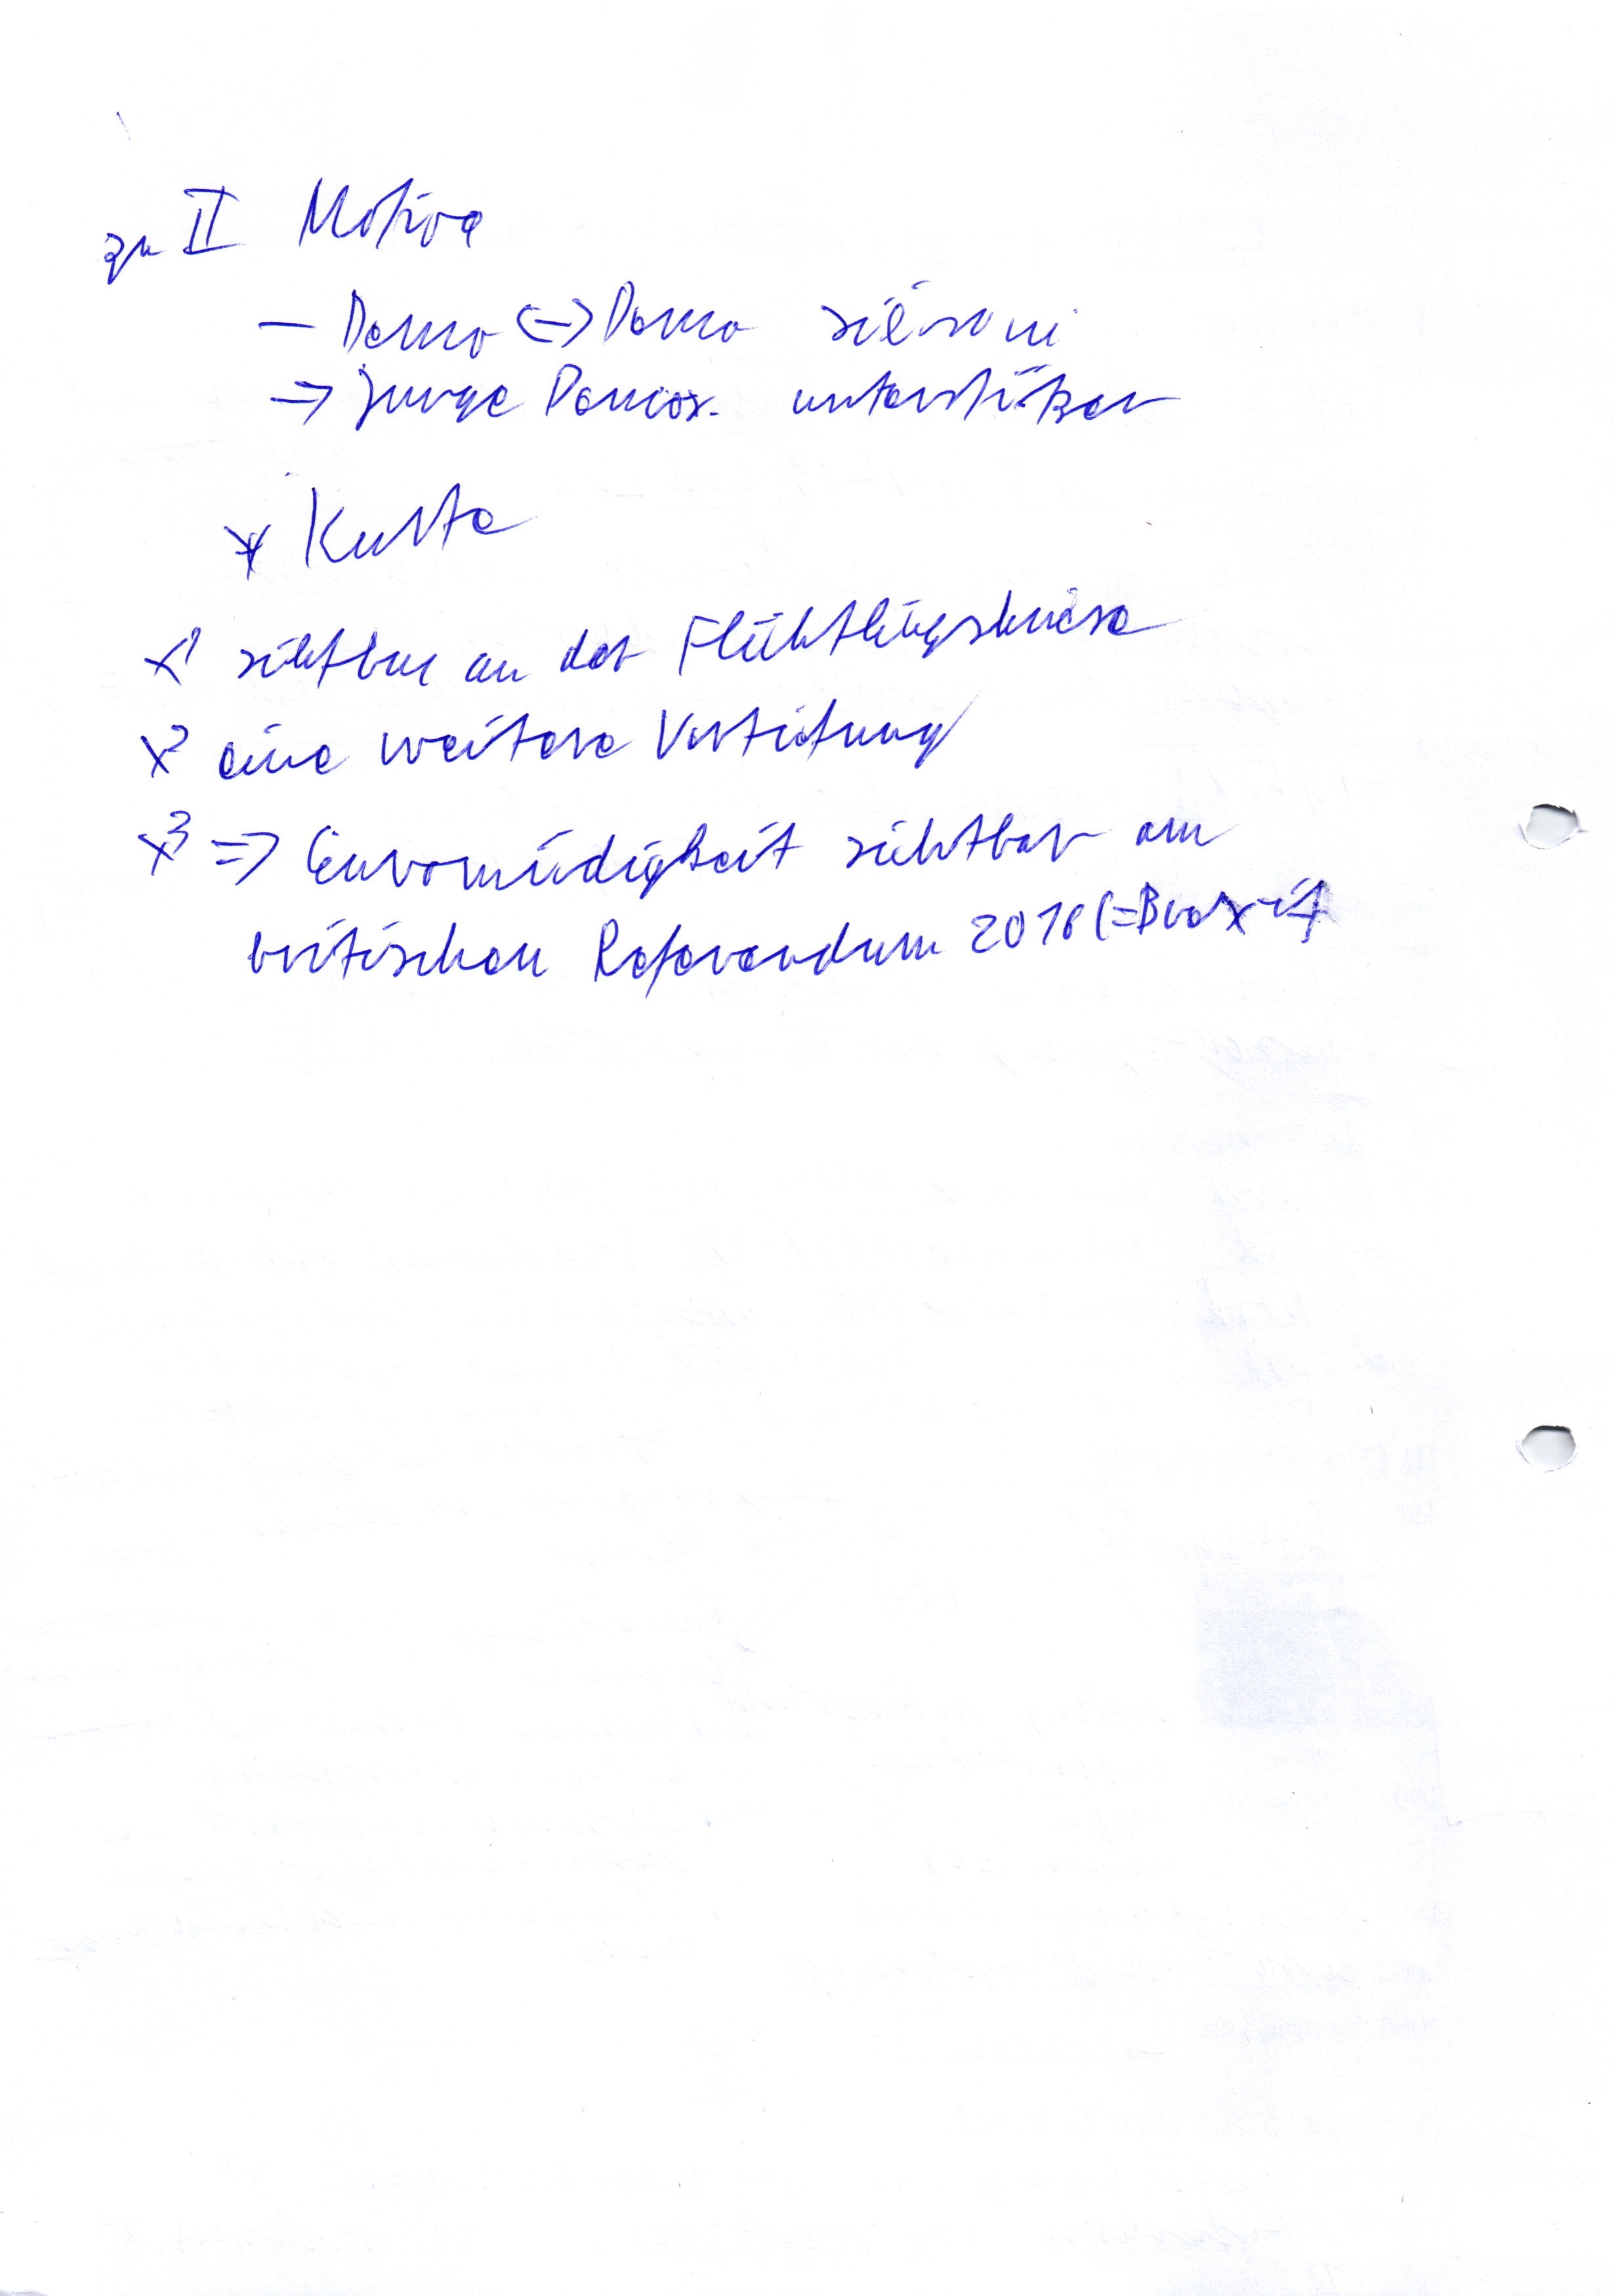 zu II Motive
– Demo <=> Demo
=> junge Demos. unterstützen
* Kette
x¹ sichtbar an der Flüchtlingskriese
x² eine weitere Vertiefung
x³ => Euromüdigkeit sichtbar am
britischen Referendum 2016 (=Brexit)